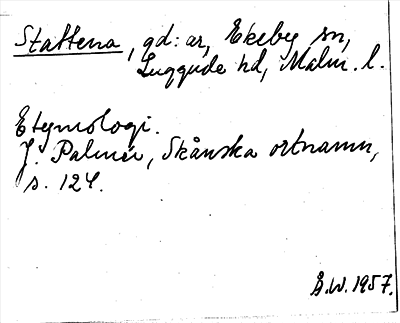 Stattena, gd:ar, Ekeby sn,
Luggude hd, Malm. l.
Etymologi.
J. Palmér, Skånska ortnamn,
s. 124.
B.W. 1957.